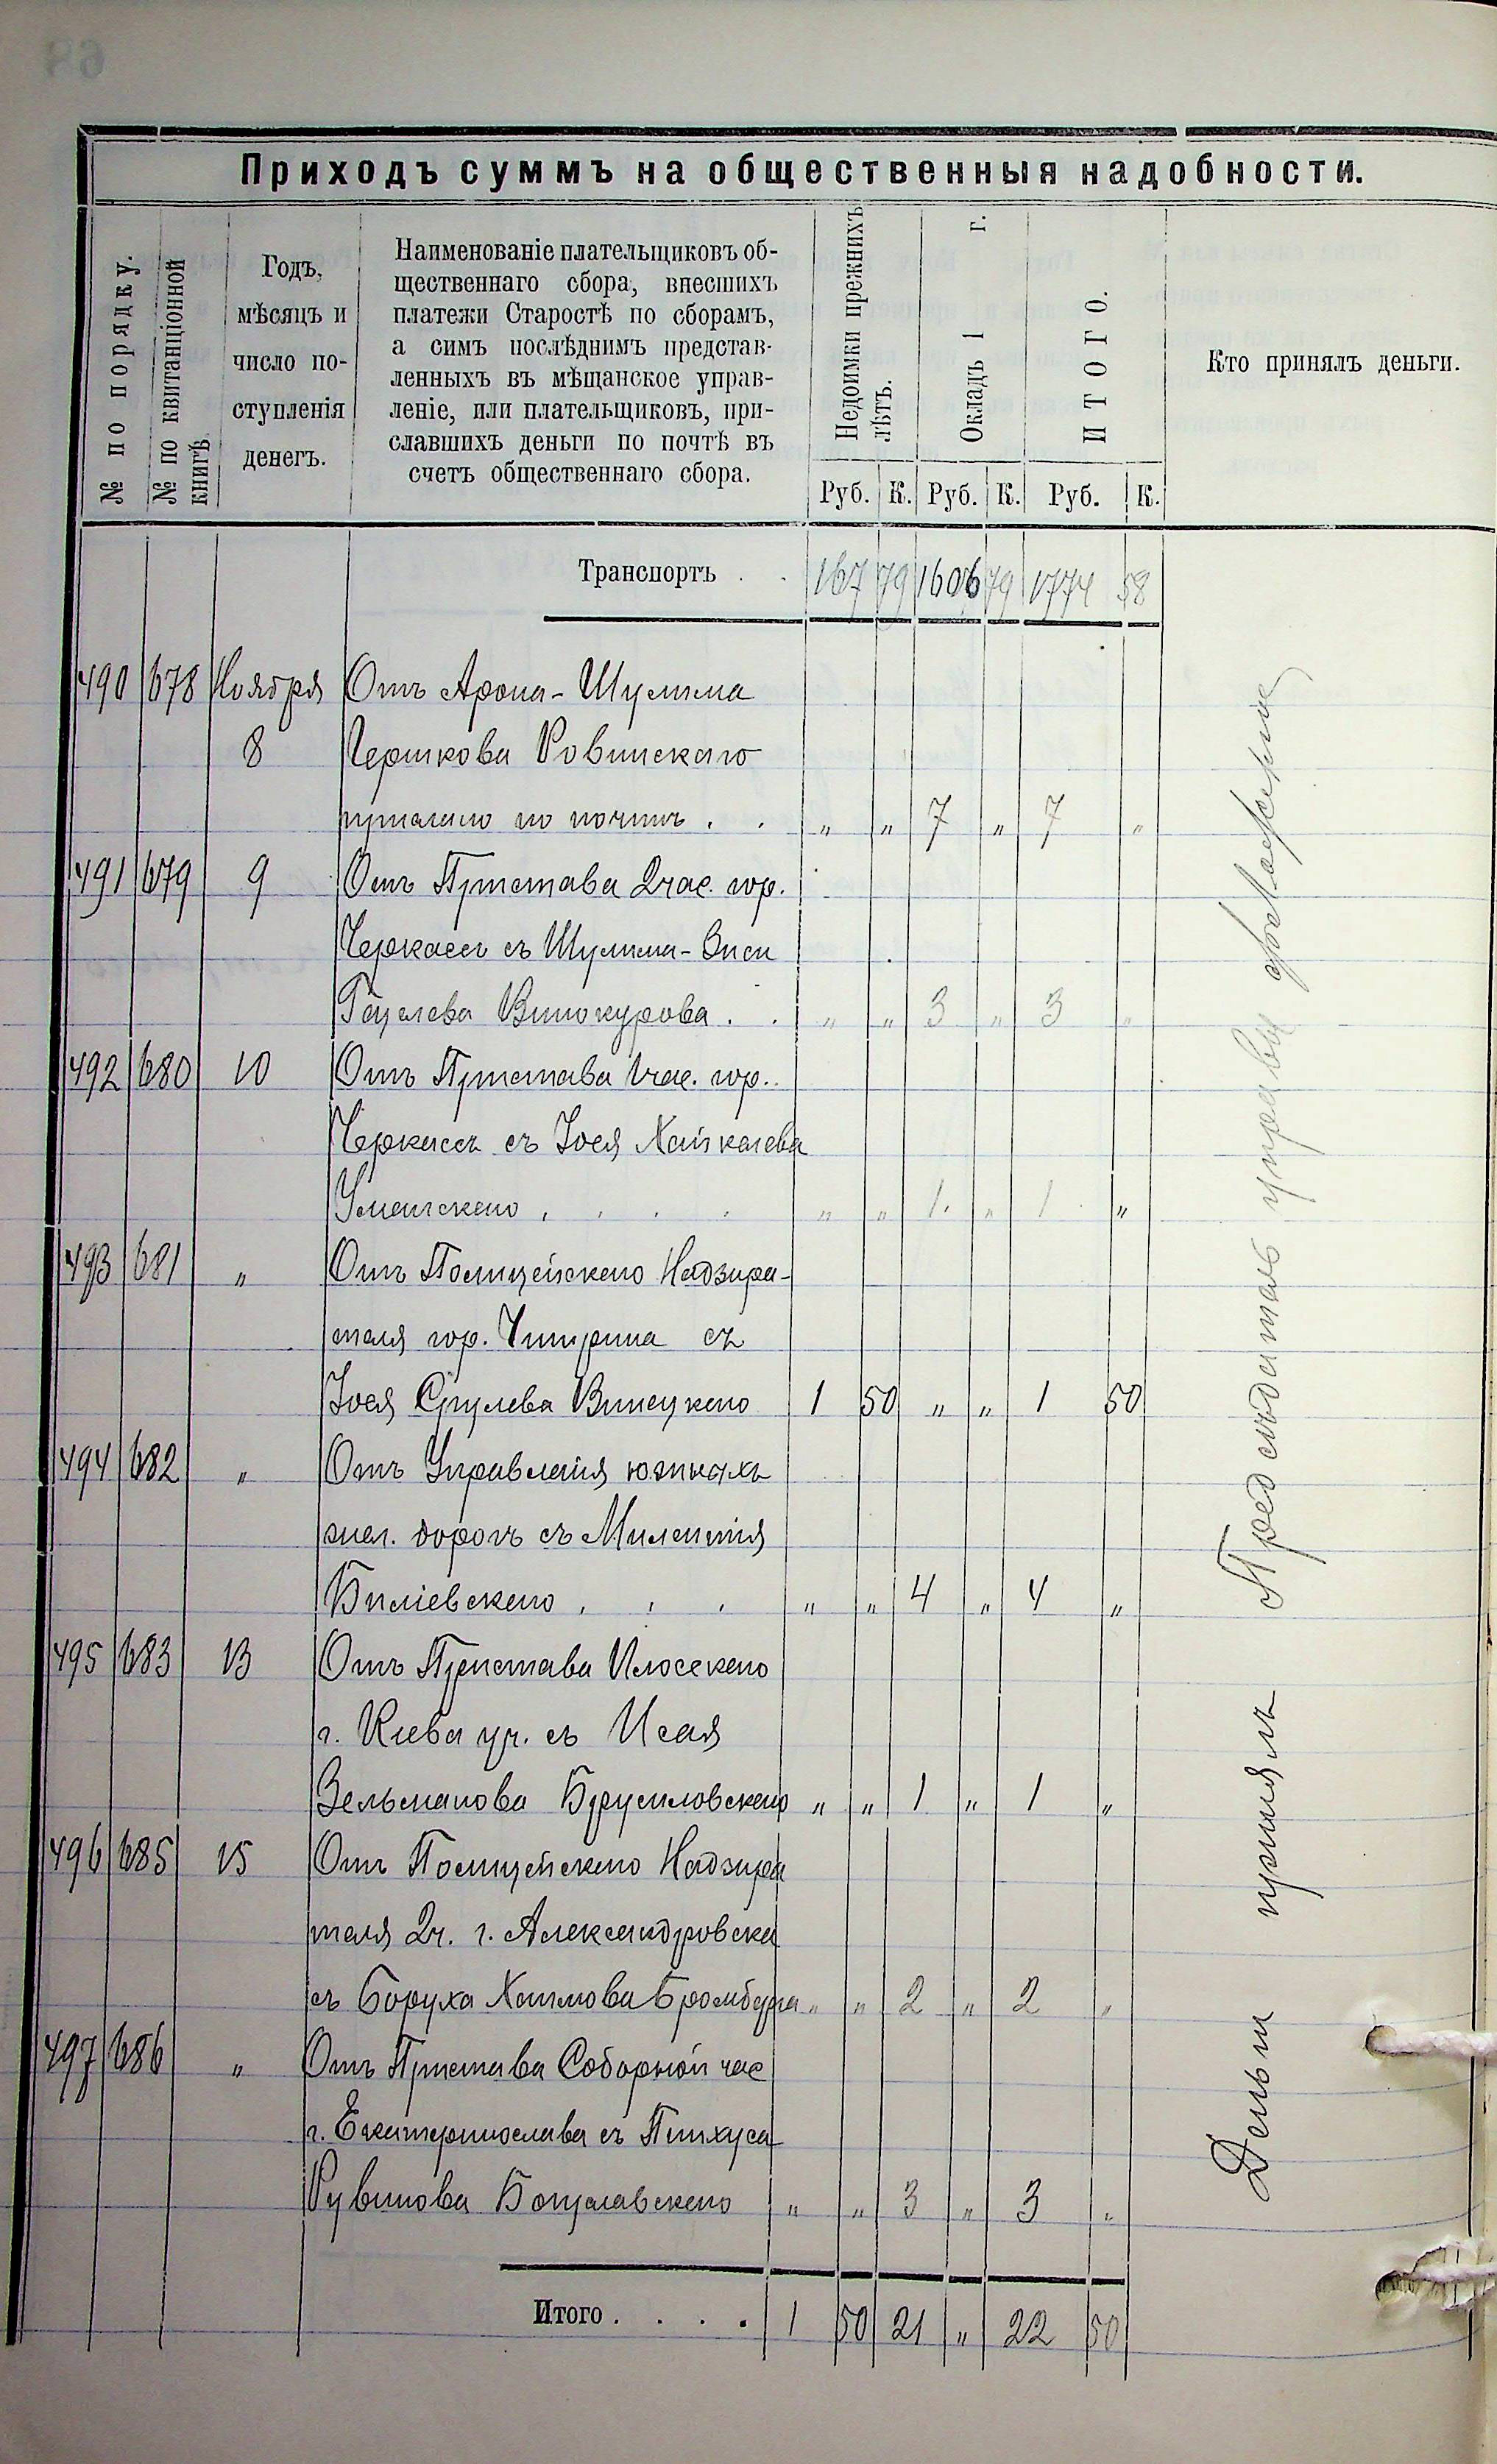 Приходъ суммъ на общественныя надобности.
№ по порядку.
№ по квитанціонной книгѣ.
Годъ, мѣсяцъ и число поступленія денегъ.
Наименованіе плательщиковъ об-
щественнаго сбора, внесшихъ
платежи Старостѣ по сборамъ,
а симъ послѣднимъ представ-
ленныхъ въ мѣщанское управ-
леніе, или плательщиковъ, при-
славшихъ деньги по почтѣ въ
счетъ общественнаго сбора.
Недоимки прежнихъ лѣтъ.
Окладъ 1 г.
ИТОГО.
Кто принялъ деньги.
Руб. К. Руб. К. Руб. К.
Транспортъ . . 167 79 1606 79 1774 58
490 678 Ноября Отъ Арона-Шулима
8 Гершкова Ровинскаго
прислано по почтѣ . . „ „ 7 „ 7 „
491 679 9 Отъ Пристава 2 час. гор.
Черкассъ съ Шулима-Зиси
Гецелева Винокурова . . „ „ 3 „ 3 „
492 680 10 Отъ Пристава 1 час. гор.
Черкассъ съ Іося Хайкелева
Уманскаго . . . . „ „ 1 „ 1 „
493 681 „ Отъ Полицейскаго Надзира-
теля гор. Чигирина съ
Іося Срулева Винецкаго 1 50 „ „ 1 50
494 682 „ Отъ Управленія южныхъ
жел. дорогъ съ Милентія
Биліевскаго . . . „ „ 4 „ 4 „
495 683 13 Отъ Пристава Плосскаго
г. Кіева уч. съ Исая
Зельманова Брусиловскаго „ „ 1 „ 1 „
496 685 15 Отъ Полицейскаго Надзира
теля 2 ч. г. Александровска
съ Боруха Хаимова Бромберга „ „ 2 „ 2 „
497 686 „ Отъ Пристава Соборной час
г. Екатеринослава съ Пинхуса
Рувинова Богуславскаго „ „ 3 „ 3 „
Итого . . . . 1 50 21 „ 22 50
Деньги принялъ Предсѣдатель управы